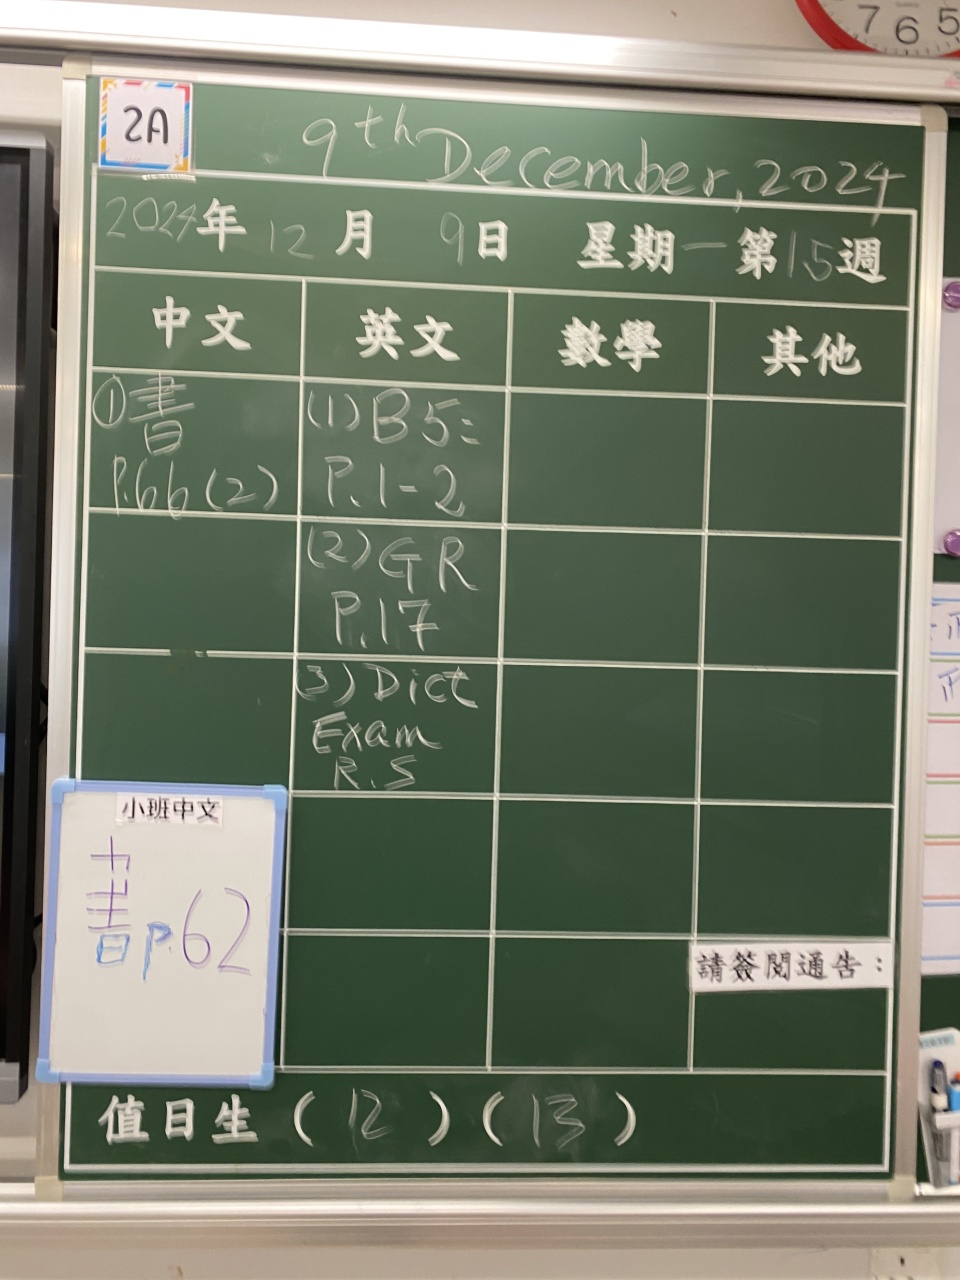 7 6 5
2A
9th December, 2024
2024年 12月 9日 星期一 第15週
中文 英文 數學 其他
①書
P.66(2)
(1) B5:
P.1-2
(2) GR
P.17
(3) Dict
Exam
R.S
小班中文
書 p.62
請簽閱通告：
值日生 (12) (13)